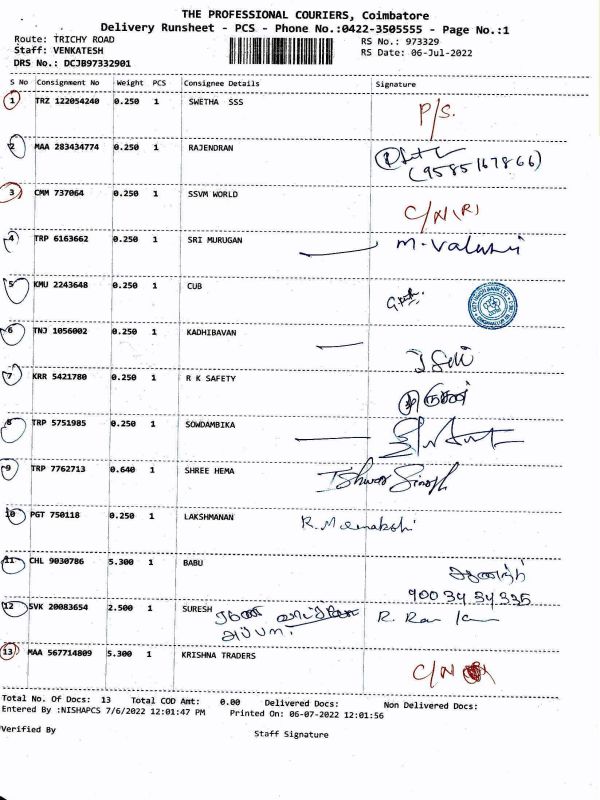 THE PROFESSIONAL COURIERS, Coimbatore
Delivery Runsheet - PCS - Phone No.:0422-3505555 - Page No.:1
Route: TRICHY ROAD RS No.: 973329
Staff: VENKATESH RS Date: 06-Jul-2022
DRS No.: DCJB97332901
S No Consignment No Weight PCS Consignee Details Signature
1 TRZ 122054240 0.250 1 SWETHA SSS P/S.
2 MAA 283434774 0.250 1 RAJENDRAN
(9585167866)
3 CMM 737064 0.250 1 SSVM WORLD C/N (R)
4 TRP 6163662 0.250 1 SRI MURUGAN M.
5 KMU 2243648 0.250 1 CUB
6 TNJ 1056002 0.250 1 KADHIBAVAN
7 KRR 5421780 0.250 1 R K SAFETY
8 TRP 5751985 0.250 1 SOWDAMBIKA
9 TRP 7762713 0.640 1 SHREE HEMA Ishwar Singh
10 PGT 750118 0.250 1 LAKSHMANAN R. Meenakshi
11 CHL 9030786 5.300 1 BABU
90034 34335
12 SVK 20083654 2.500 1 SURESH R.
அப்பா.
13 MAA 567714809 5.300 1 KRISHNA TRADERS C/N
Total No. Of Docs: 13 Total COD Amt: 0.00 Delivered Docs: Non Delivered Docs:
Entered By :NISHAPCS 7/6/2022 12:01:47 PM Printed On: 06-07-2022 12:01:56
Verified By Staff Signature